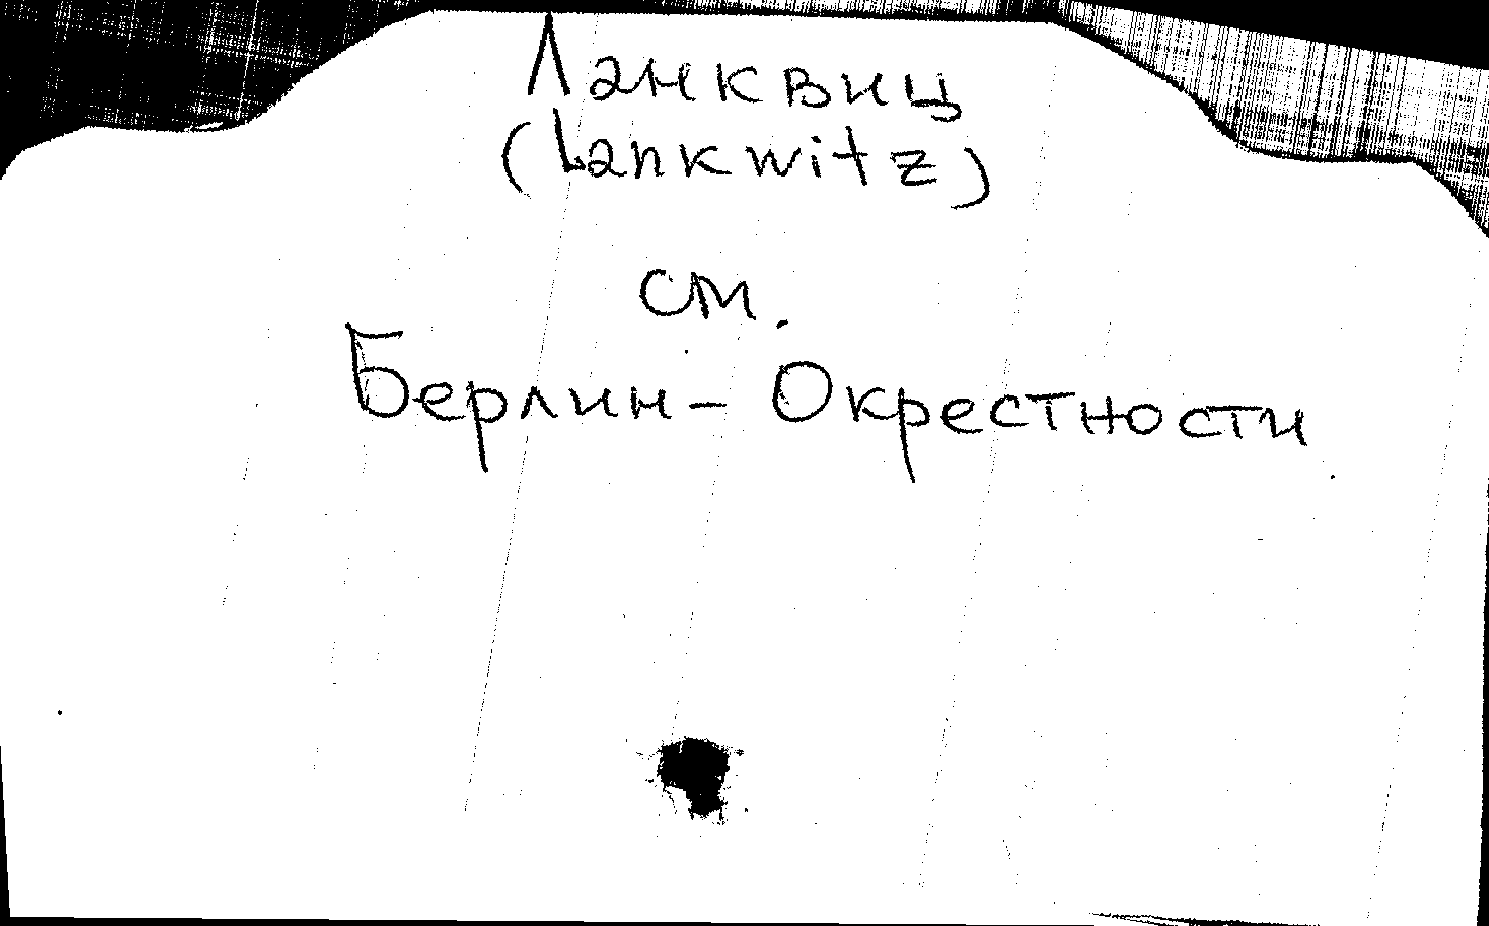 Ланквиц
(Lankwitz)
см.
Берлин- Окрестности